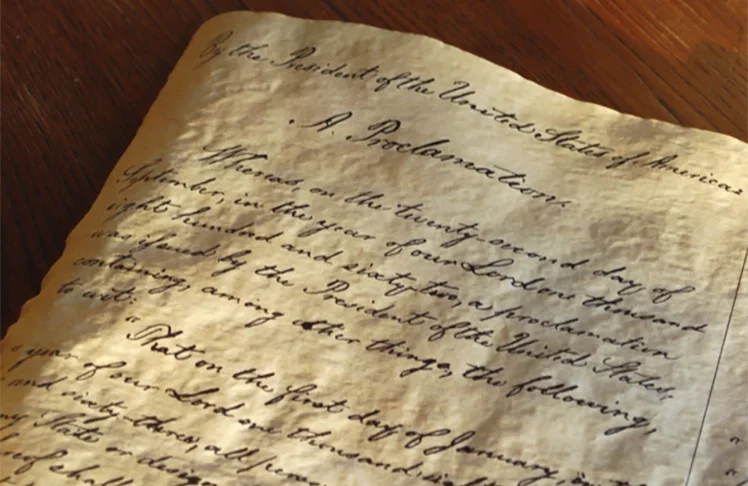 By the President of the United States of America:
A Proclamation.
Whereas, on the twenty-second day of
September, in the year of our Lord one thousand
eight hundred and sixty two, a proclamation
was issued by the President of the United States,
containing, among other things, the following,
to wit:
"That on the first day of January, in the
"year of our Lord one thousand eight
"and sixty-three, all persons
any State or desig
thereof shall
"
"